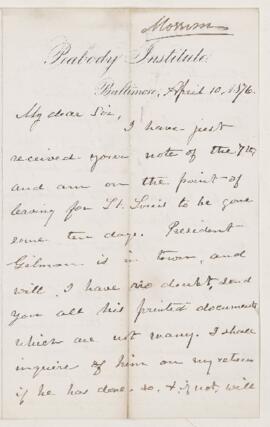 Peabody Institute.
Baltimore, April 10, 1876.
My dear Sir,
I have just
received your note of the 7th,
and am on the point of
leaving for St. Louis to be gone
some ten days. President
Gilman is in town, and
will, I have no doubt, send
you all his printed documents
which are not many. I shall
inquire of him on my return
if he has done so, & if not, will